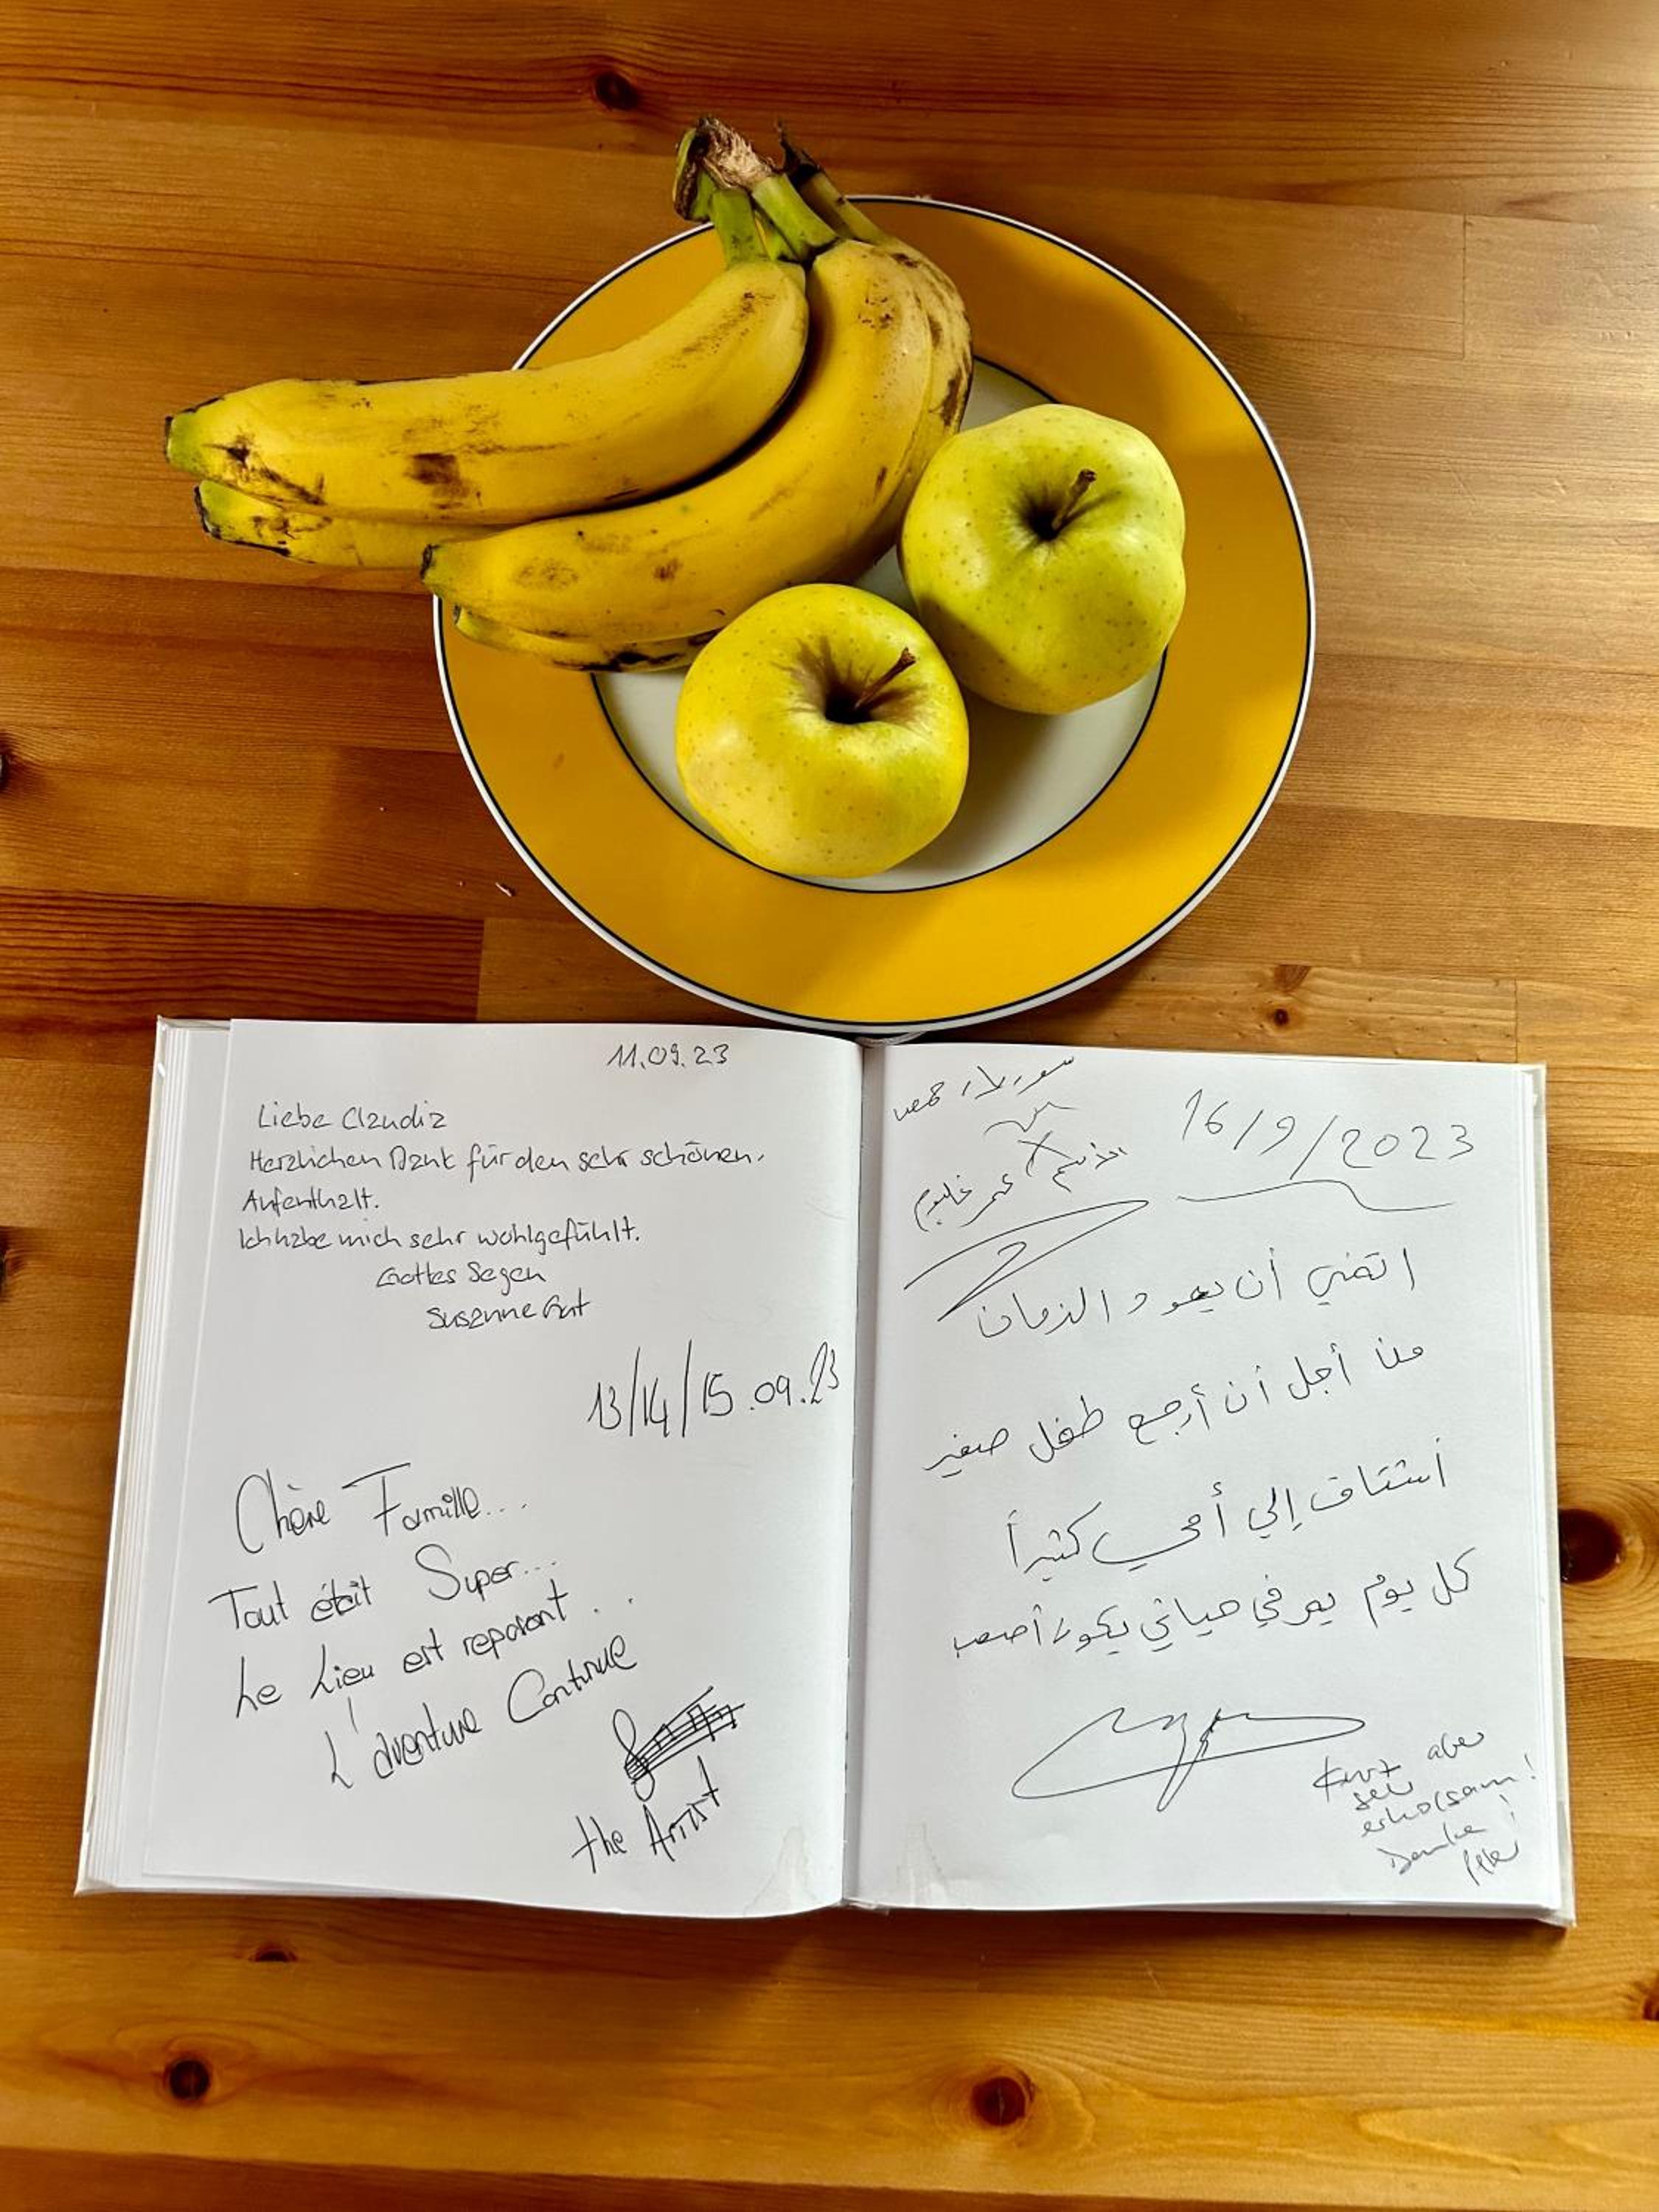 11.09.23
Liebe Claudia
Herzlichen Dank für den sehr schönen.
Aufenthalt.
Ich habe mich sehr wohlgefühlt.
Gottes Segen
Susanne Gut
13/14/15.09.23
Chère Famille...
Tout était Super...
Le Lieu est reposant...
L'aventure Continue
the Artist
سوريا / حمص
16/9/2023
عمر
اتمنى أن يعود الزمان
من أجل أن أرجع طفل صغير
أشتاق إلي أمي كثيراً
كل يوم يمر في حياتي يكون أصعب
Kurz aber
sehr
erholsam!
Danke!